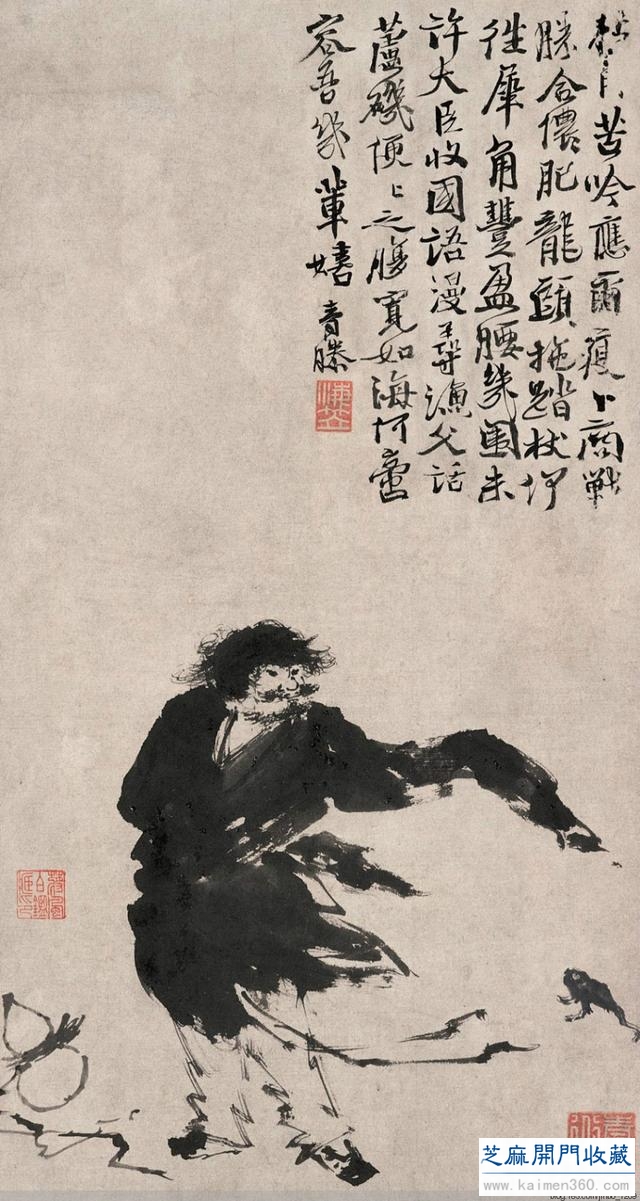 苦吟應爾瘦卜商戰
勝合儂肥龍頭拖踏杖
犀角豐盈腰幾圍未
許大臣收國語漫尋漁父話
蘆磯便々之腹寬如海何嘗
容吾幾輩嬉 青藤
芝麻開門收藏
www.kaimen360.com